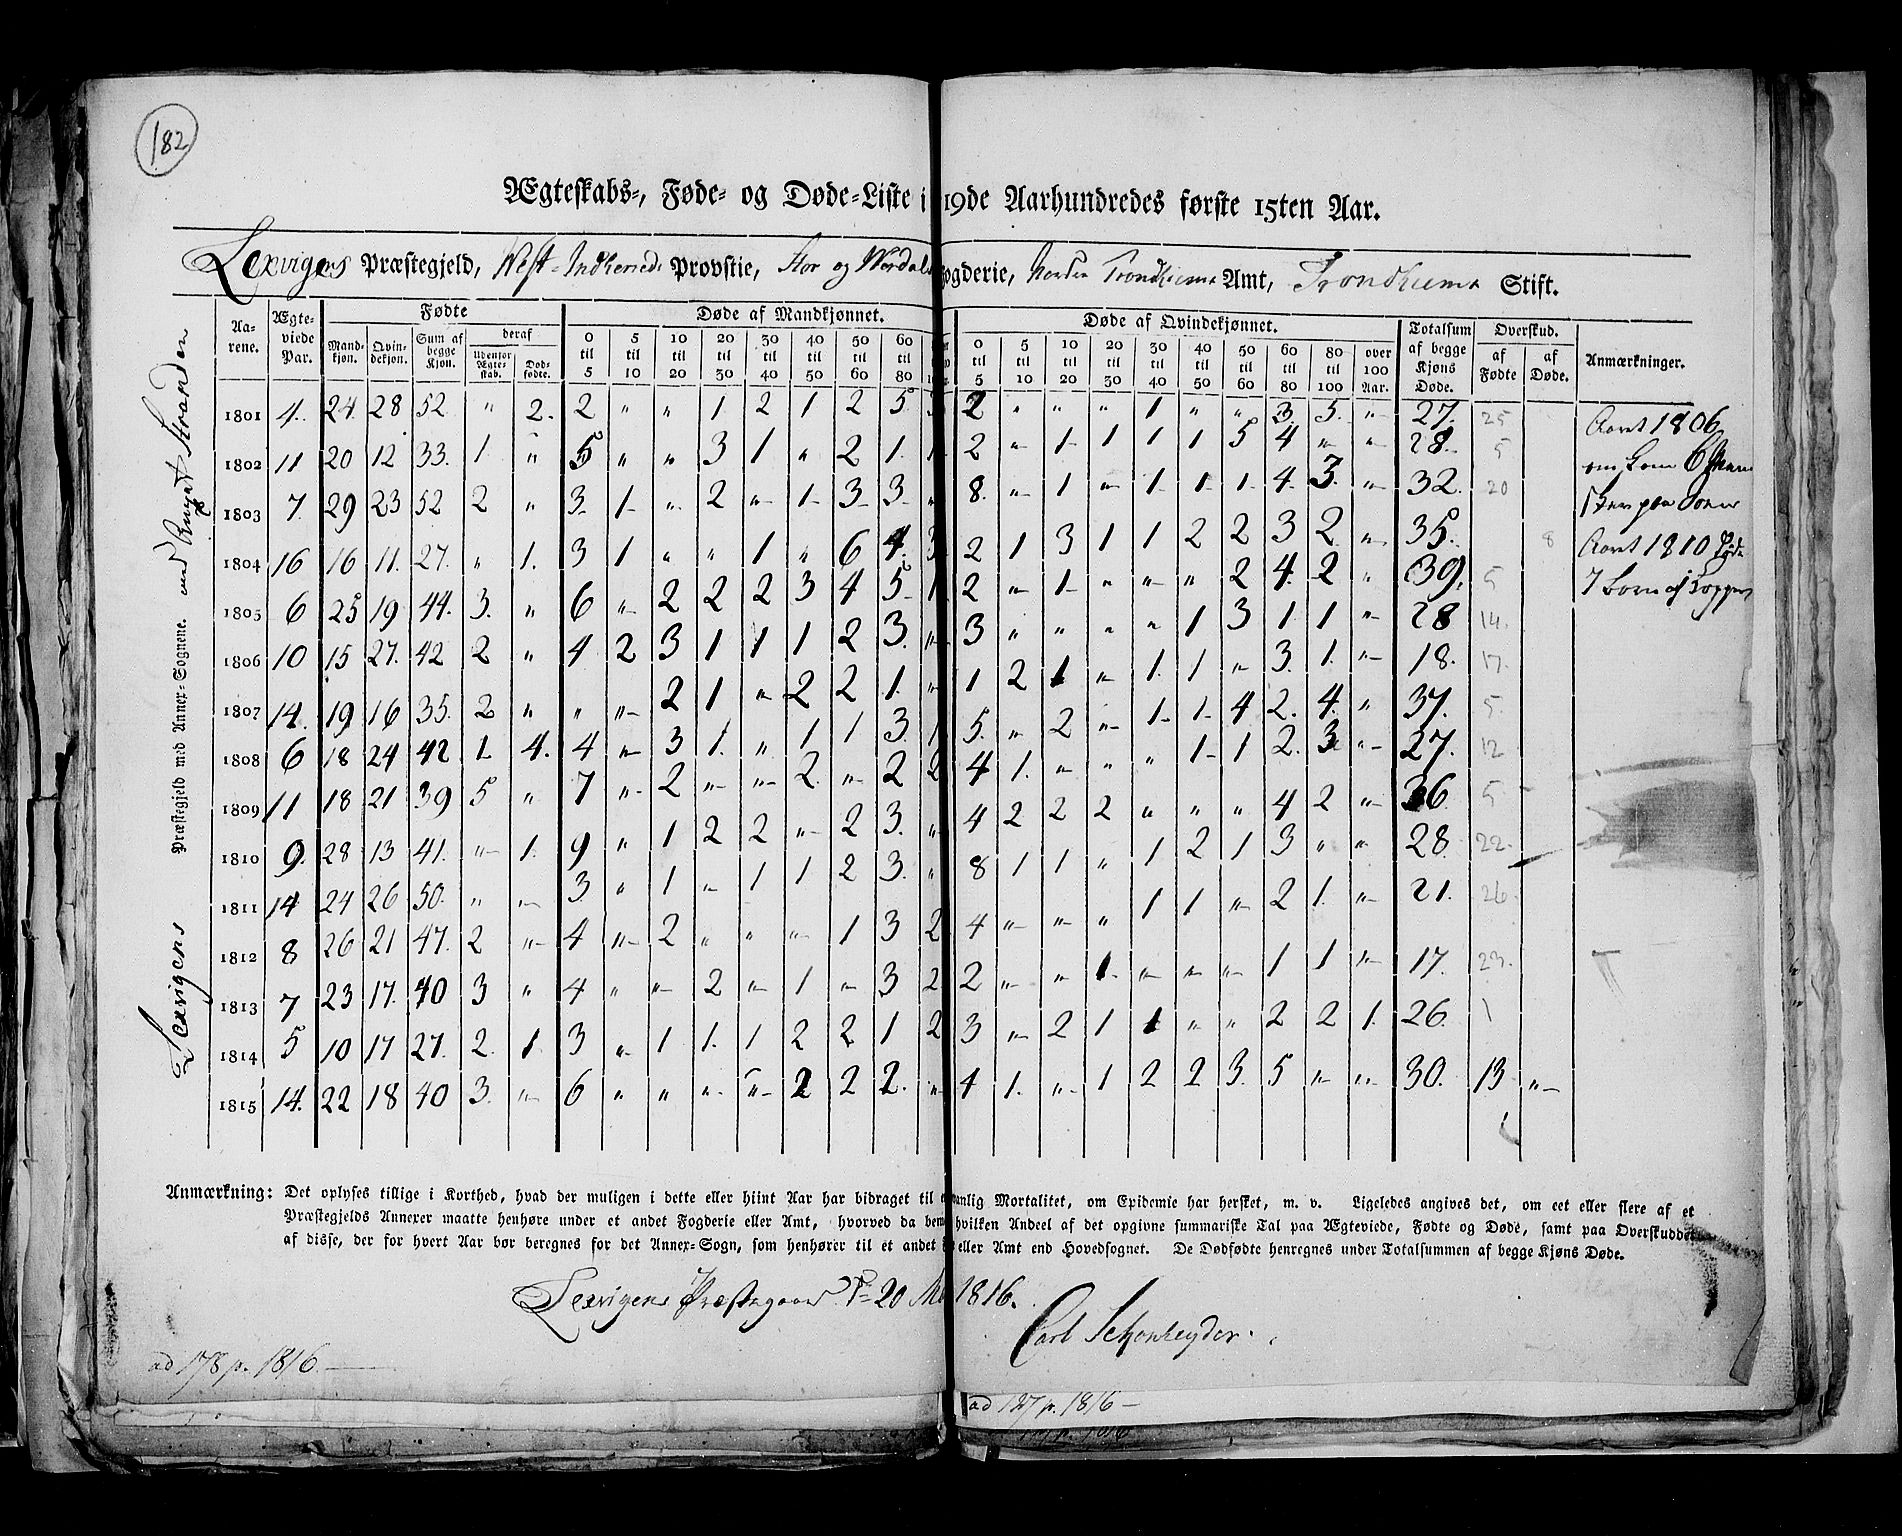 182
Ægteskabs-, Føde- og Døde-Liste i 19de Aarhundredes første 15ten Aar.
Lexvigens Præstegjeld, West-Inderiets Provstie, Stor og Værdals Fogderie, Norder Trondhiems Amt, Trondhiems Stift.
Lexvigens Præstegjeld med Annex-Sognene. med Annexet Stranden
Aarene. Ægteviede Par. Fødte Døde af Mandkjønnet. Døde af Qvindekjønnet. Totalsum af begge Kjøns Døde. Overskud. Anmærkninger.
Mandkjøn. Qvindekjøn. Sum af begge Kjøn. deraf Udenfor Ægteskab. Dødfødte. 0 til 5 5 til 10 10 til 20 20 til 30 30 til 40 40 til 50 50 til 60 60 til 80 0 til 5 5 til 10 10 til 20 20 til 30 30 til 40 40 til 50 50 til 60 60 til 80 80 til 100 over 100 Aar. af Fødte af Døde.
1801 4. 24. 28 52 " 2. 2 " " 1 2 1 2 5 2 " " " 1 " " 3 5. " 27. 25
1802 11 20 12 33. 1 " 5 " " 3 1 " 2 1. 1 2 " 1 1 1 1 5 4 " " 28. 5
1803 7. 29 23 52 2 " 3 1 " 2 " 1 3 3 " 8. " 1 " 1 1 1 4. 3. " 32. 20
1804 16 16 11. 27. " 1. 3 1 " " 1 " 6 4. 3 2 1 3 1 1 2 2 3 2 " 35. 8
1805 6 25 19 44. 3. " 6 " 2 2 2 3 4 5 1 2 " 1 " " " 2 4. 2 " 39. 5
1806 10 15 27. 42 2 " 4 2 3 1 1 1 2 3. " 3 " " " " 1 3 1 1 " 28 14.
1807 14. 19 16 35. 2 " " " 2 1 " 2 2 1. " 1 2 1 " 1. 1 " 3. 1. " 18. 17.
1808 6 18 24 42 1 4. 4 " 3 1. " 1 1 3. 1 5. " 2 " 1 1 4 2. 4. " 37. 5.
1809 11 18 21 39 5 " 7 " 2 " " 2. " 2 2 4 1. " " " 1 1 2. 3 " 27. 12
1810 9. 28 13 41. " 1. 9 " 1 2 2 " 2 3. " 4 2 2 2 " " " 4 2 " 36 5
1811 14 24 26 50. " " 3 " 1 " 1 1 2 3. " 8 1 1 " 1 2 1 3 " " 28. 22.
1812 8 26 21 47. 2 " 4 " 2 " " " 1 3 2 4 " " " 1 1 " 2 1. " 21. 26.
1813 7 23 17. 40 3 " 4 " " 2 " 1 " 3 2 2 " " 1. " " " 1 1 " 17. 23.
1814 5 10 17 27. 2. 1 3 " 1 1. 1 2 2 1 2 3 " 2 1 1 " " 2 2 1. 26. 1
1815 14. 22 18 40 3. " 6 " " " " 2 2 2. " 4 1. " 1 2 2 3. 5 " " 30. 13 "
Aaret 1806
om kom 6
paa Søen
Aaret 1810 døde
7 Børn af Kopper
Anmærkning: Det oplyses tillige i Korthed, hvad der muligen i dette eller hiint Aar har bidraget til anlig Mortalitet, om Epidemie har hersket, m. v. Ligeledes angives det, om eet eller flere af et
Præstegjelds Annexer maatte henhøre under et andet Fogderie eller Amt, hvorved da bem hvilken Andeel af det opgivne summariske Tal paa Ægteviede, Fødte og Døde, samt paa Overskuddet
af disse, der for hvert Aar bør beregnes for det Annex-Sogn, som henhører til et andet eller Amt end Hovedsognet. De Dødfødte henregnes under Totalsummen af begge Kjøns Døde.
Lexvigens Præstegaard d. 20 1816.
Carl Schønheyder.
ad 178 p. 1816
ad 127 p. 1816